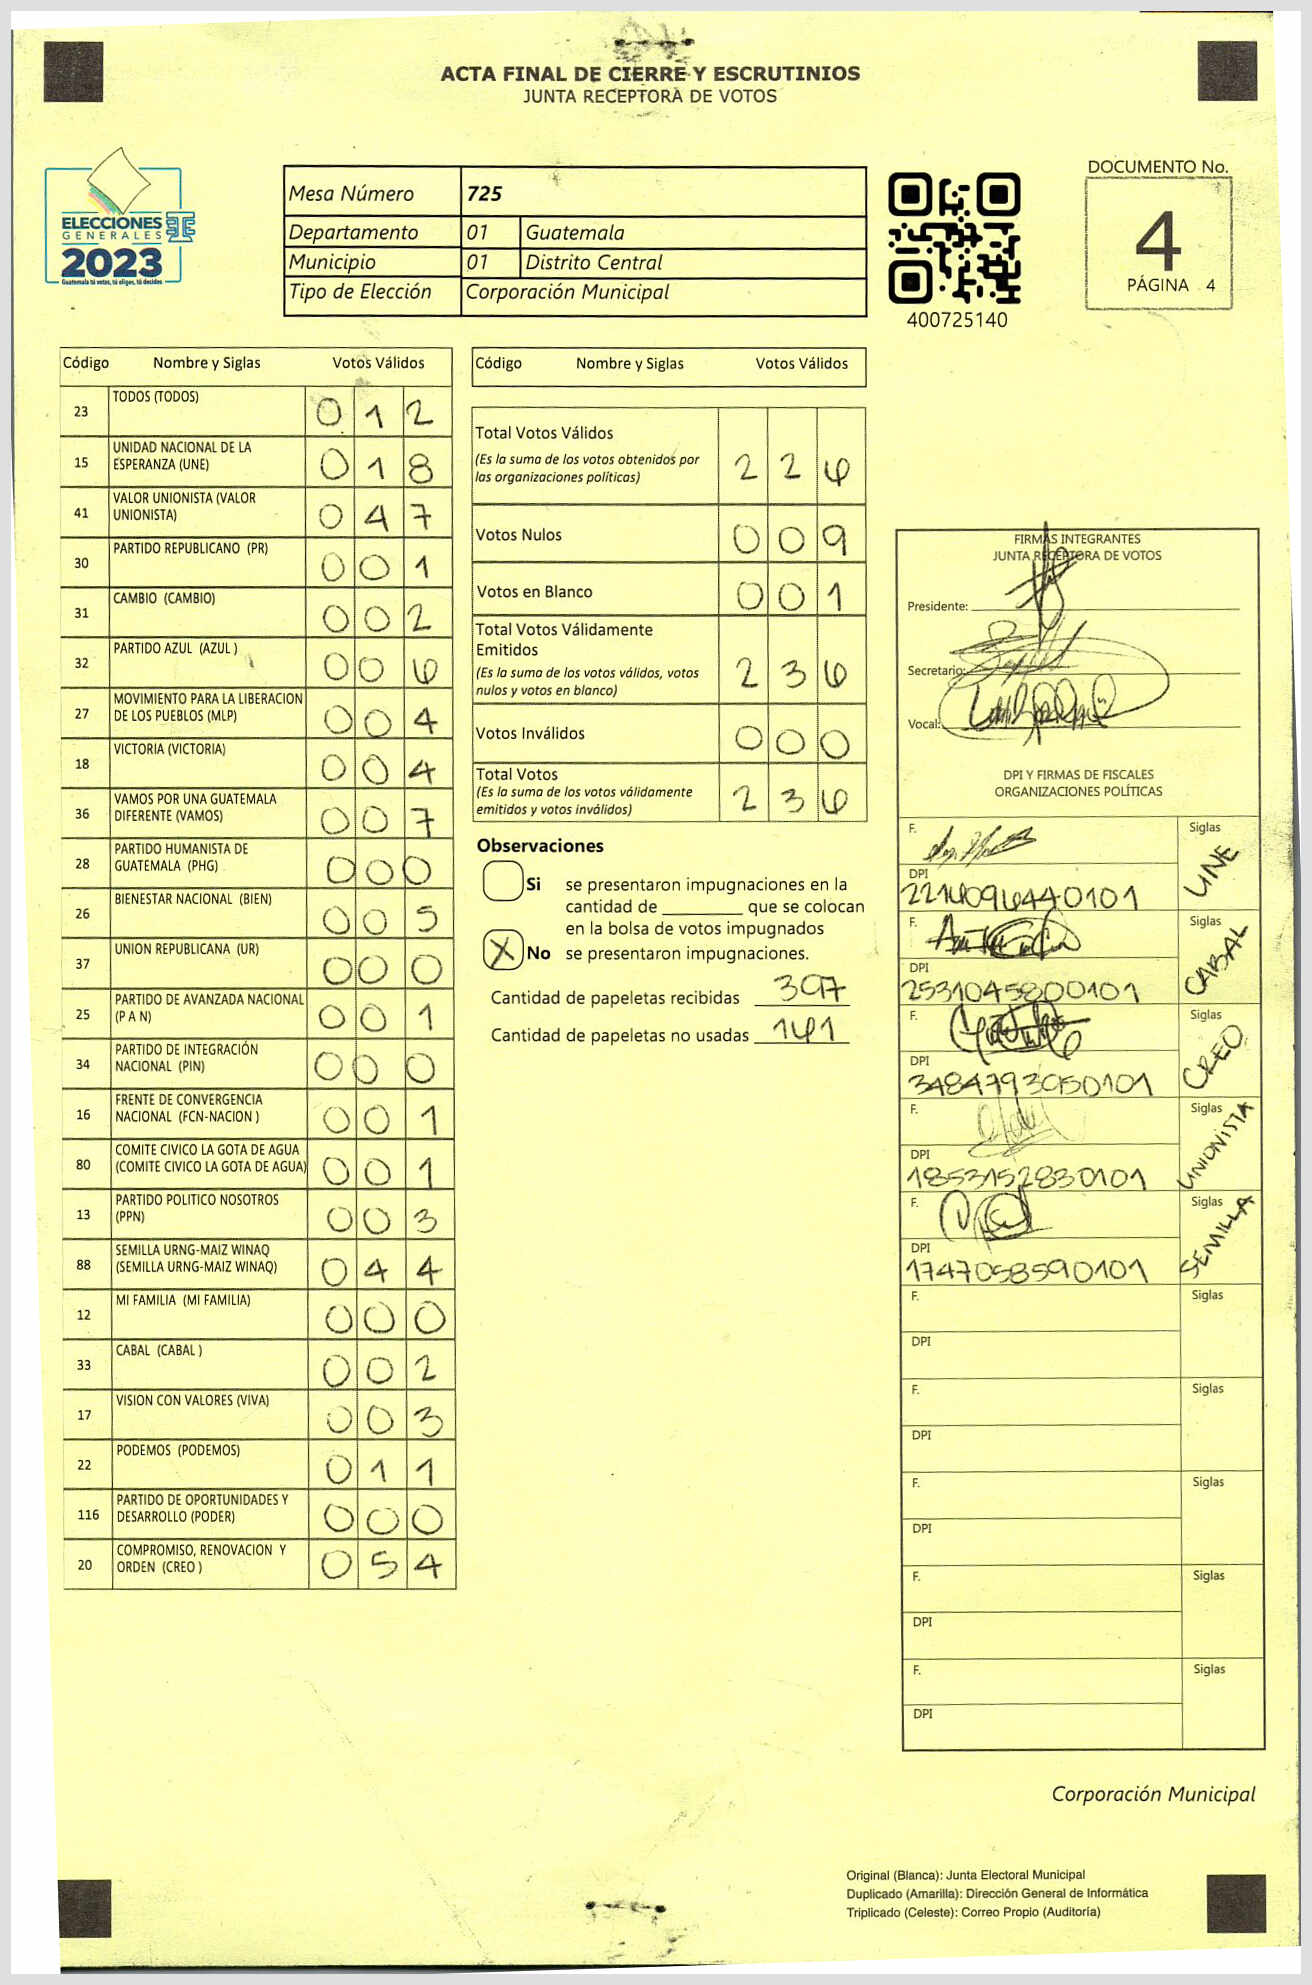 ACTA FINAL DE CIERRE Y ESCRUTINIOS
JUNTA RECEPTORA DE VOTOS
ELECCIONES
GENERALES
2023
Guatemala tú votas, tú eliges, tú decides
Mesa Número 725
Departamento 01 Guatemala
Municipio 01 Distrito Central
Tipo de Elección Corporación Municipal
400725140
DOCUMENTO No.
4
PÁGINA 4
Código Nombre y Siglas Votos Válidos
23 TODOS (TODOS) 0 1 2
15 UNIDAD NACIONAL DE LA
ESPERANZA (UNE) 0 1 8
41 VALOR UNIONISTA (VALOR
UNIONISTA) 0 4 7
30 PARTIDO REPUBLICANO (PR) 0 0 1
31 CAMBIO (CAMBIO) 0 0 2
32 PARTIDO AZUL (AZUL ) 0 0 6
27 MOVIMIENTO PARA LA LIBERACION
DE LOS PUEBLOS (MLP) 0 0 4
18 VICTORIA (VICTORIA) 0 0 4
36 VAMOS POR UNA GUATEMALA
DIFERENTE (VAMOS) 0 0 7
28 PARTIDO HUMANISTA DE
GUATEMALA (PHG) 0 0 0
26 BIENESTAR NACIONAL (BIEN) 0 0 5
37 UNION REPUBLICANA (UR) 0 0 0
25 PARTIDO DE AVANZADA NACIONAL
(P A N) 0 0 1
34 PARTIDO DE INTEGRACIÓN
NACIONAL (PIN) 0 0 0
16 FRENTE DE CONVERGENCIA
NACIONAL (FCN-NACION ) 0 0 1
80 COMITE CIVICO LA GOTA DE AGUA
(COMITE CIVICO LA GOTA DE AGUA) 0 0 1
13 PARTIDO POLITICO NOSOTROS
(PPN) 0 0 3
88 SEMILLA URNG-MAIZ WINAQ
(SEMILLA URNG-MAIZ WINAQ) 0 4 4
12 MI FAMILIA (MI FAMILIA) 0 0 0
33 CABAL (CABAL ) 0 0 2
17 VISION CON VALORES (VIVA) 0 0 3
22 PODEMOS (PODEMOS) 0 1 1
116 PARTIDO DE OPORTUNIDADES Y
DESARROLLO (PODER) 0 0 0
20 COMPROMISO, RENOVACION Y
ORDEN (CREO ) 0 5 4
Código Nombre y Siglas Votos Válidos
Total Votos Válidos
(Es la suma de los votos obtenidos por
las organizaciones políticas) 2 2 6
Votos Nulos 0 0 9
Votos en Blanco 0 0 1
Total Votos Válidamente
Emitidos
(Es la suma de los votos válidos, votos
nulos y votos en blanco) 2 3 6
Votos Inválidos 0 0 0
Total Votos
(Es la suma de los votos válidamente
emitidos y votos inválidos) 2 3 6
Observaciones
Si se presentaron impugnaciones en la
cantidad de ________ que se colocan
en la bolsa de votos impugnados
X No se presentaron impugnaciones.
Cantidad de papeletas recibidas 397
Cantidad de papeletas no usadas 161
FIRMAS INTEGRANTES
JUNTA RECEPTORA DE VOTOS
Presidente:
Secretario:
Vocal:
DPI Y FIRMAS DE FISCALES
ORGANIZACIONES POLÍTICAS
F. Siglas UNE
DPI
2216096440101
F. Siglas CABAL
DPI
2531045800101
F. Siglas CREO
DPI
3484793050101
F. Siglas UNIONISTA
DPI
1853152830101
F. Siglas SEMILLA
DPI
1747058590101
F. Siglas
DPI
F. Siglas
DPI
F. Siglas
DPI
F. Siglas
DPI
F. Siglas
DPI
Corporación Municipal
Original (Blanca): Junta Electoral Municipal
Duplicado (Amarilla): Dirección General de Informática
Triplicado (Celeste): Correo Propio (Auditoría)